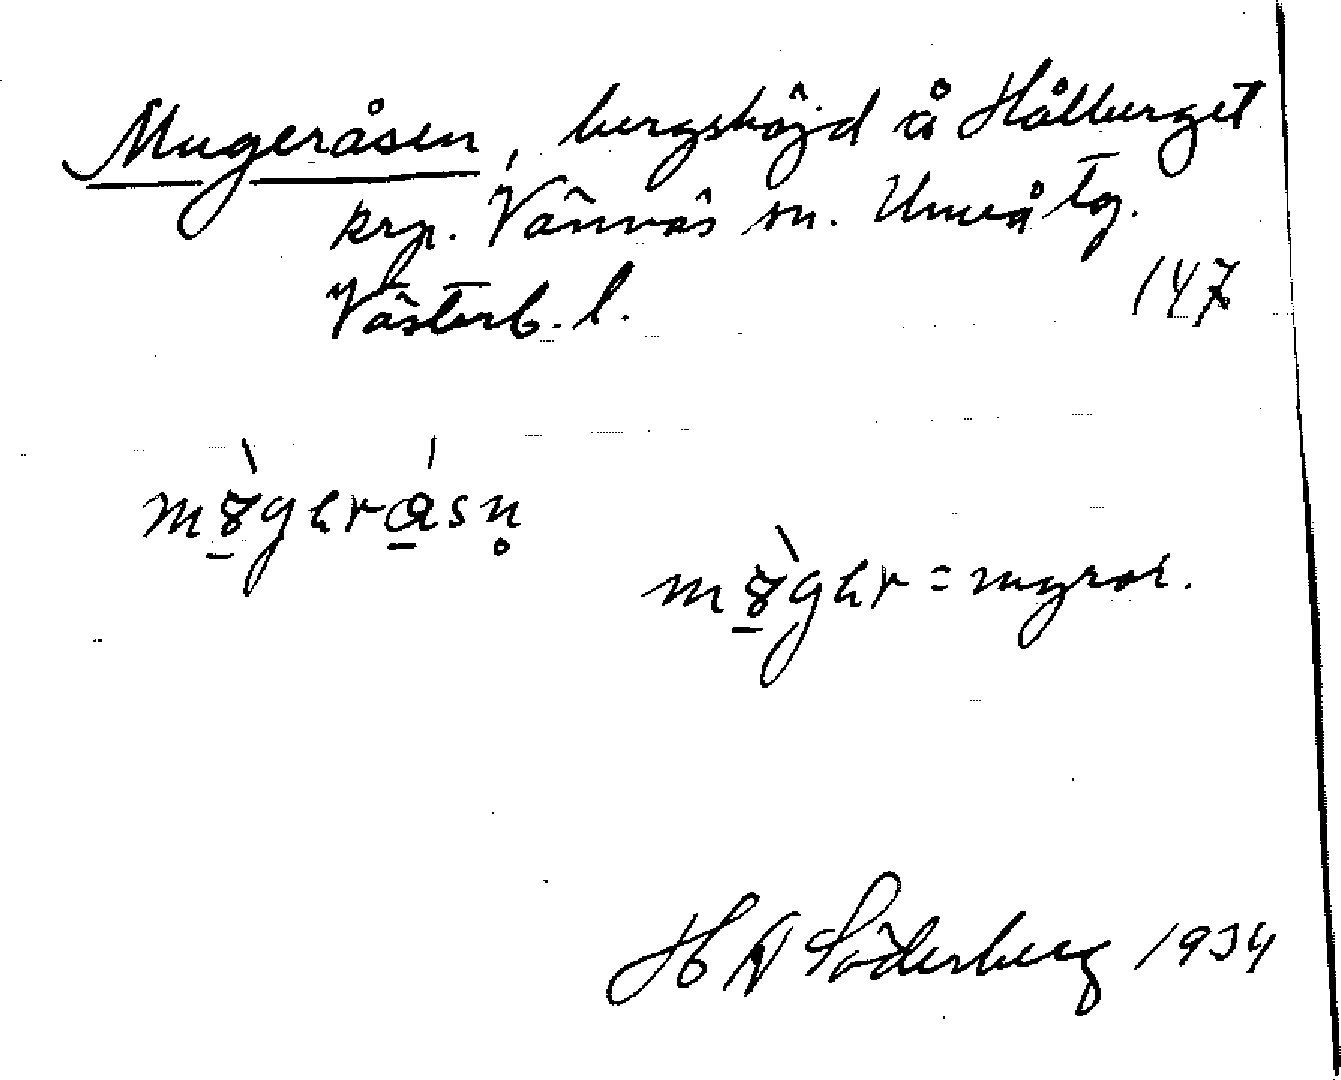 Mugeråsen, bergshöjd å Hålberget
krp. Vännäs sn. Umeå tg.
Västerb. l. 147
= myror.
H N Söderberg 1934